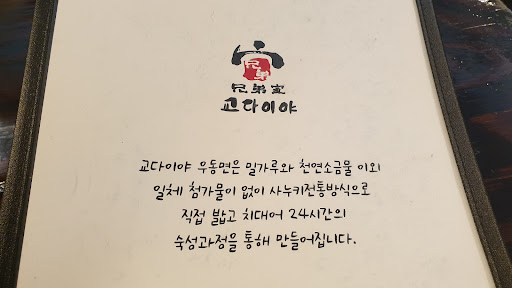 兄弟
兄弟宝
교다이야
교다이야 우동면은 밀가루와 천연소금물 이외
일체 첨가물이 없이 사누키전통방식으로
직접 밟고 치대어 24시간의
숙성과정을 통해 만들어집니다.